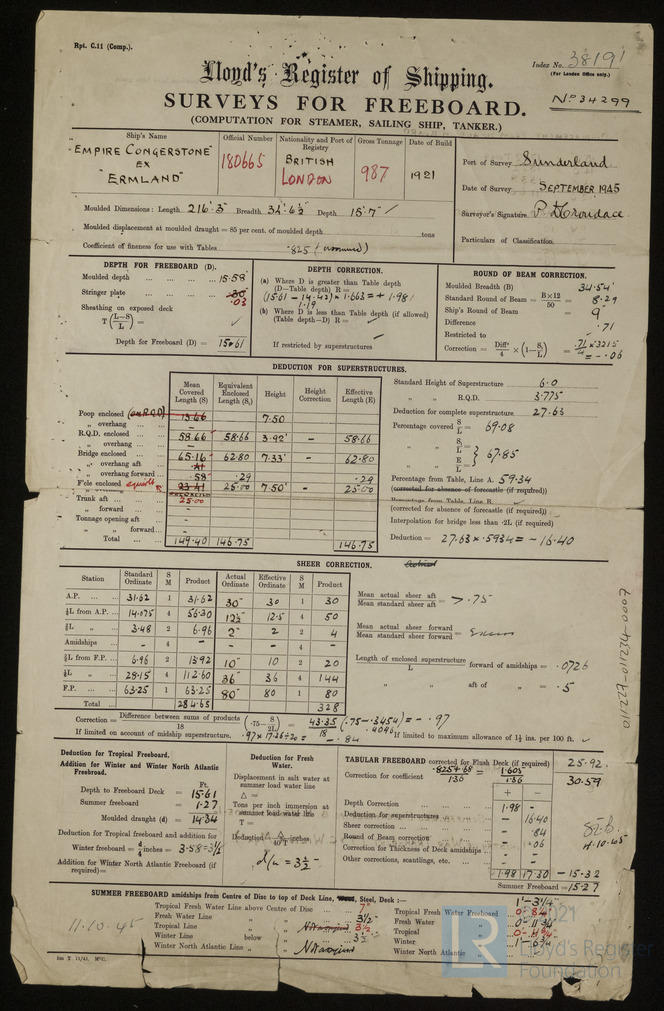 Rpt. C.11 (Comp.).
Index No. 38191
(For London Office only.)
Lloyd's Register of Shipping.
No 34299
SURVEYS FOR FREEBOARD.
(COMPUTATION FOR STEAMER, SAILING SHIP, TANKER.)
Ship's Name
"EMPIRE CONGERSTONE"
EX
"ERMLAND"
Official Number
180665
Nationality and Port of Registry
BRITISH
LONDON
Gross Tonnage
987
Date of Build
1921
Port of Survey Sunderland
Date of Survey SEPTEMBER 1945
Surveyor's Signature
Particulars of Classification
Moulded Dimensions: Length 216.3' Breadth 34'-6½" Depth 15'-7"
Moulded displacement at moulded draught = 85 per cent. of moulded depth tons
Coefficient of fineness for use with Tables .825 (assumed)
DEPTH FOR FREEBOARD (D).
Moulded depth ... 15.58
Stringer plate ... .03
Sheathing on exposed deck
T (L-S / L) =
Depth for Freeboard (D) = 15.61
DEPTH CORRECTION.
(a) Where D is greater than Table depth
(D-Table depth) R =
(15.61 - 14.42) × 1.663 = + 1.98
1.19
(b) Where D is less than Table depth (if allowed)
(Table depth-D) R =
If restricted by superstructures
ROUND OF BEAM CORRECTION.
Moulded Breadth (B) 34.54'
Standard Round of Beam = B×12 / 50 = 8.29
Ship's Round of Beam = 9"
Difference .71
Restricted to
Correction = Diff. / 4 × (1 - S₁ / L) = .71 × .3215 / 4 = - .06
DEDUCTION FOR SUPERSTRUCTURES.
Mean Covered Length (S)
Equivalent Enclosed Length (S₁)
Height
Height Correction
Effective Length (E)
Poop enclosed (on R.Q.D) 13.66 7.50
„ overhang ... -
R.Q.D. enclosed ... 58.66 58.66 3.92' - 58.66
„ overhang ... -
Bridge enclosed ... 65.16 62.80 7.33' - 62.80
„ overhang aft
„ overhang forward .58 .29 .29
F'cle enclosed 23.41 25.00 7.50' - 25.00
25.00
Trunk aft ... -
„ forward ... -
Tonnage opening aft -
„ „ forward -
Total ... 149.40 146.75 146.75
Standard Height of Superstructure 6.0
„ „ R.Q.D. 3.775
Deduction for complete superstructure 27.63
Percentage covered S / L = 69.08
S₁ / L =
E / L = } 67.85
Percentage from Table, Line A. 59.34
(corrected for absence of forecastle (if required))
Percentage from Table, Line B.
(corrected for absence of forecastle (if required))
Interpolation for bridge less than .2L (if required)
Deduction = 27.63 × .5934 = - 16.40
SHEER CORRECTION.
Station Standard Ordinate S M Product Actual Ordinate Effective Ordinate S M Product
A.P. ... 31.62 1 31.62 30" 30 1 30
⅙L from A.P. ... 14.075 4 56.30 12½" 12.5 4 50
⅓L „ ... 3.48 2 6.96 2" 2 2 4
Amidships ... - 4 - - - 4 -
⅓L from F.P. ... 6.96 2 13.92 10" 10 2 20
⅙L „ ... 28.15 4 112.60 36" 36 4 144
F.P. ... 63.25 1 63.25 80" 80 1 80
Total ... 284.65 328
Mean actual sheer aft / Mean standard sheer aft = > .75
Mean actual sheer forward / Mean standard sheer forward = Excess
Length of enclosed superstructure / L forward of amidships = .0726
„ „ aft of „ = .5
Correction = Difference between sums of products / 18 (.75 - S / 2L) = 43.35 / 18 (.75 - .3454) = - .97
.4046
If limited on account of midship superstructure. .97 × 17.26 ÷ 20 = - .84 If limited to maximum allowance of 1½ ins. per 100 ft.
Deduction for Tropical Freeboard.
Addition for Winter and Winter North Atlantic Freeboard.
Ft.
Depth to Freeboard Deck = 15.61
Summer freeboard = 1.27
Moulded draught (d) = 14.34
Deduction for Tropical freeboard and addition for
Winter freeboard = d / 4 inches = 3.58 = 3½
Addition for Winter North Atlantic Freeboard (if required) =
Deduction for Fresh Water.
Displacement in salt water at summer load water line
△ =
Tons per inch immersion at summer load water line
T =
Deduction = △ / 40T inches
d/4 = 3½ -
TABULAR FREEBOARD corrected for Flush Deck (if required) 25.92
Correction for coefficient .825 + .68 / 1.36 = 1.605 / 1.36 30.59
+ -
Depth Correction ... 1.98 -
Deduction for superstructures ... - 16.40
Sheer correction ... - .84
Round of Beam correction ... - .06
Correction for Thickness of Deck amidships ... - -
Other corrections, scantlings, etc. ... - -
1.98 17.30 - 15.32
Summer Freeboard = 15.27
11.10.45
SUMMER FREEBOARD amidships from Centre of Disc to top of Deck Line, Wood, Steel, Deck :— 1'-3¼"
Tropical Fresh Water Line above Centre of Disc ... 7"
Fresh Water Line „ „ ... 3½"
Tropical Line „ „ ... 3½
Winter Line below „ ... 3½
Winter North Atlantic Line „ „ ... Not assigned
Tropical Fresh Water Freeboard ... 0'-8¼"
Fresh Water „ ... 0'-11¾"
Tropical „ ... 0'-11¾"
Winter „ ... 1'-6¾"
Winter North Atlantic „ ...
11.10.45
011227-011234-0007
©2021
LR
Lloyd's Register
Foundation